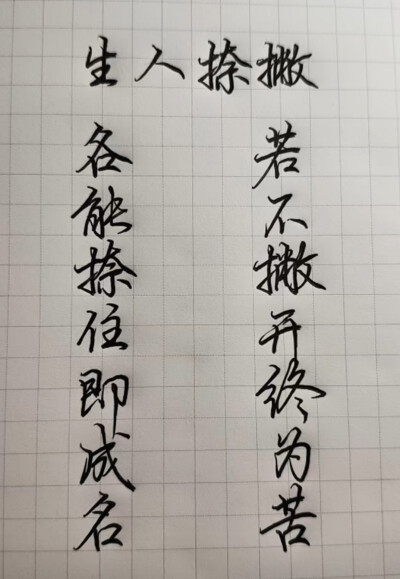 撇捺人生
若不撇开终为苦
各能捺住即成名